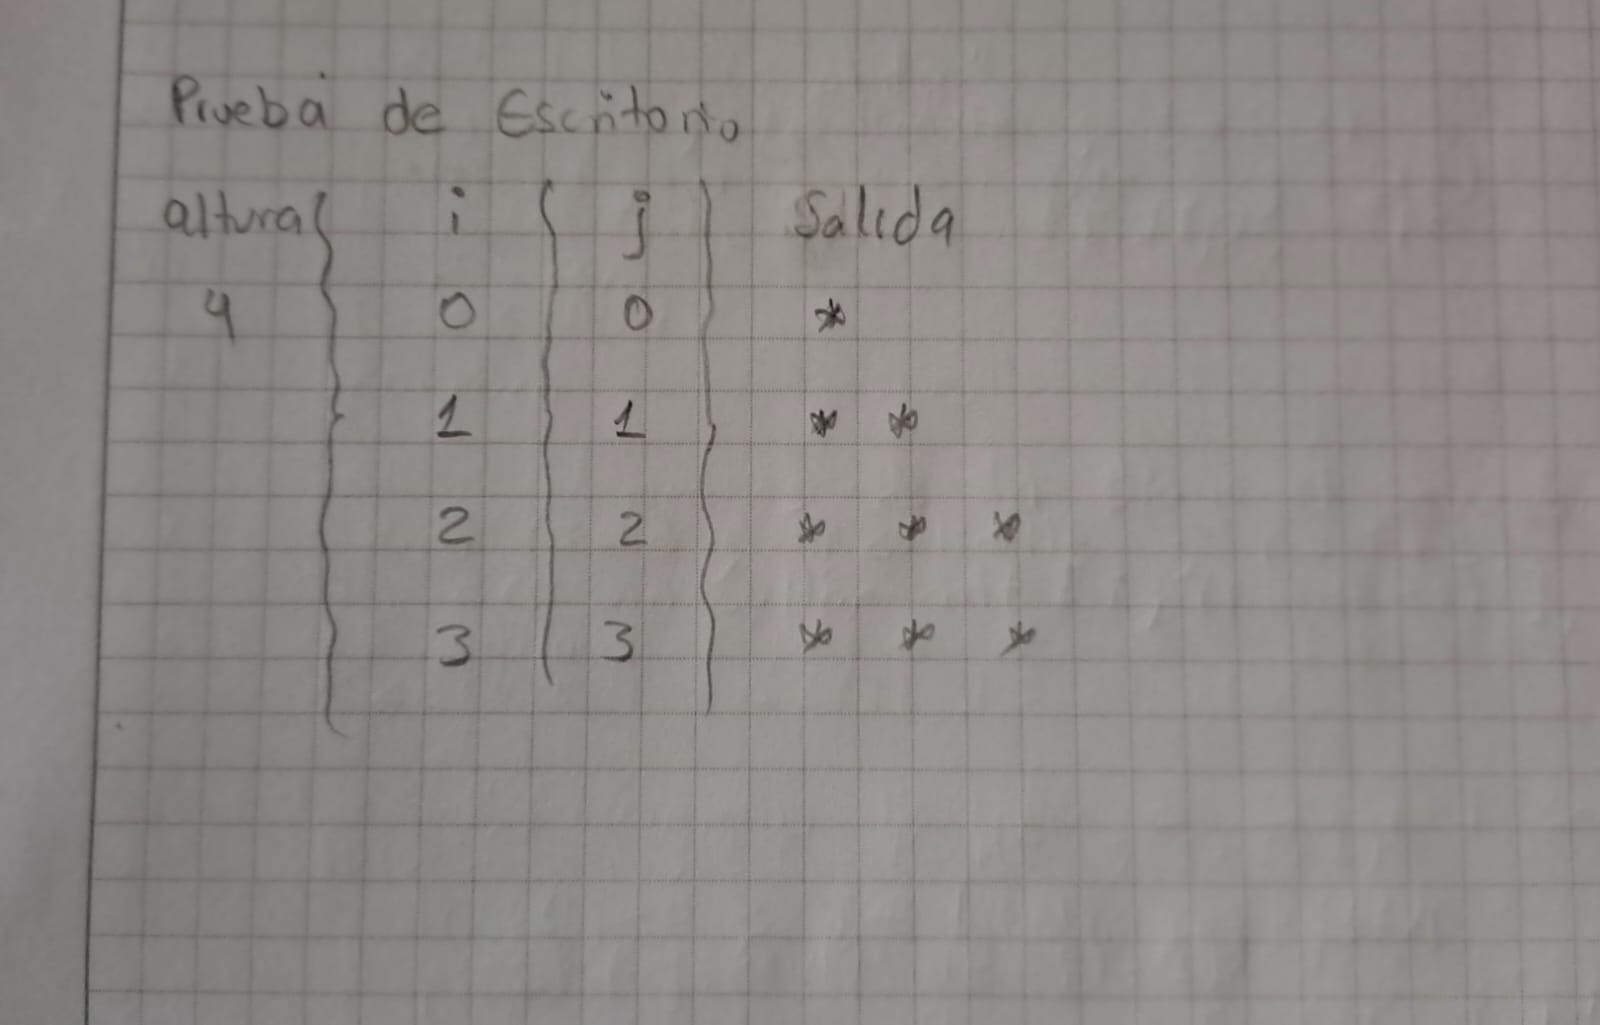 Prueba de Escritorio
altura i j Salida
4 0 0 *
1 1 * *
2 2 * * *
3 3 * * *